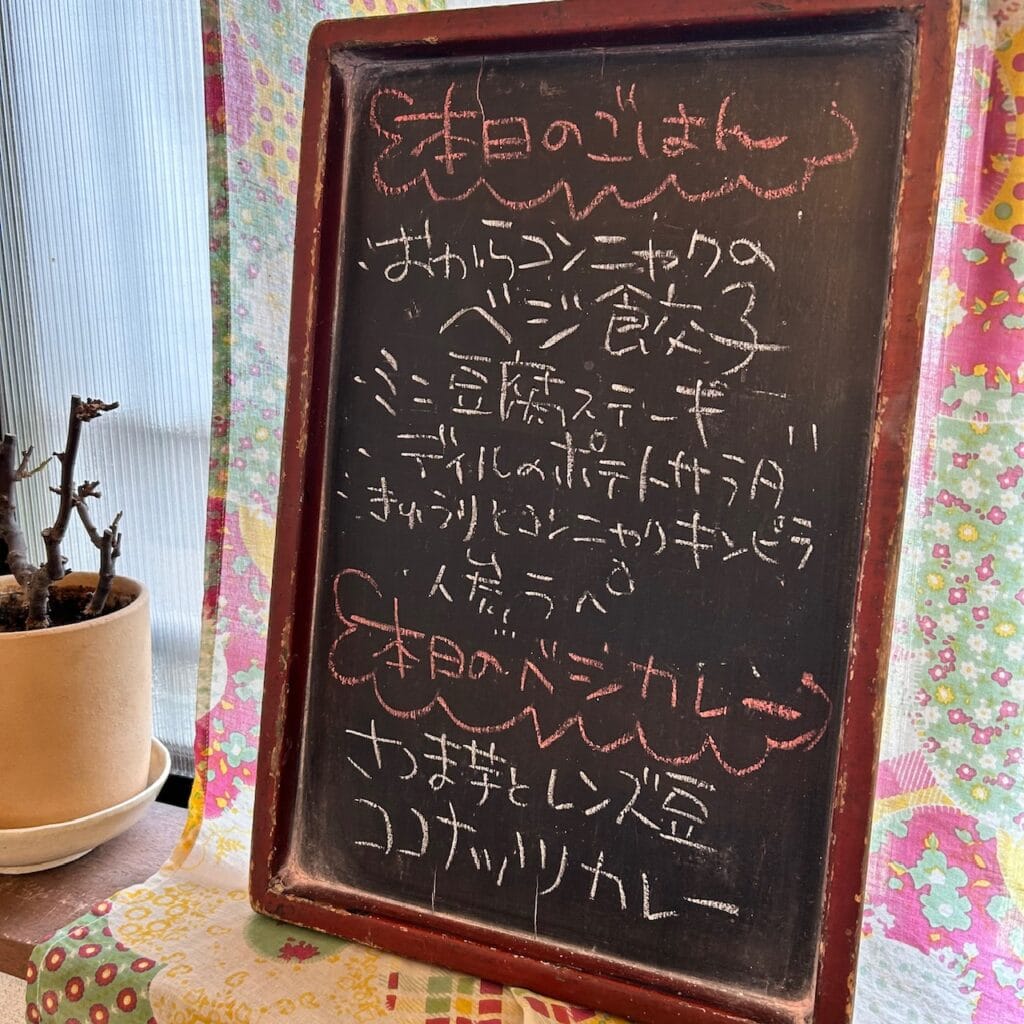 本日のごはん
・おからコンニャクの
ベジ餃子
・ミニ豆腐ステーキ
・ディルのポテトサラダ
・きゅうりとコンニャクキンピラ
・人参ラペ
本日のベジカレー
さつま芋とレンズ豆
ココナッツカレー